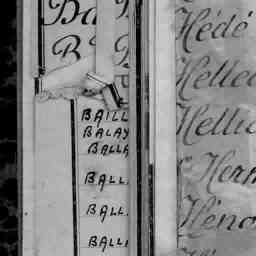 Ba
B
BAILL
BALAY
BALLA
BALL
BALL
BALL
Hédé
Helle
Hellic
Herm
Héno